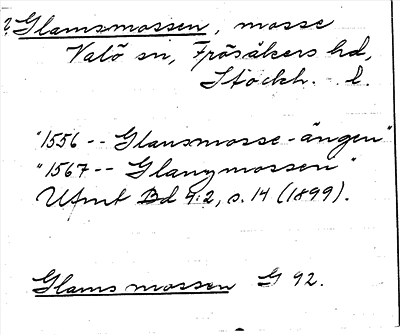 ? Glamsmossen, mosse
Valö sn, Frösåkers hd,
Stockh. l.
"1556 -- Glansmosse-ängen"
"1567 -- Glanzmossen"
Ufmt Bd 4:2, s. 14 (1899).
Glams mossen G 92.